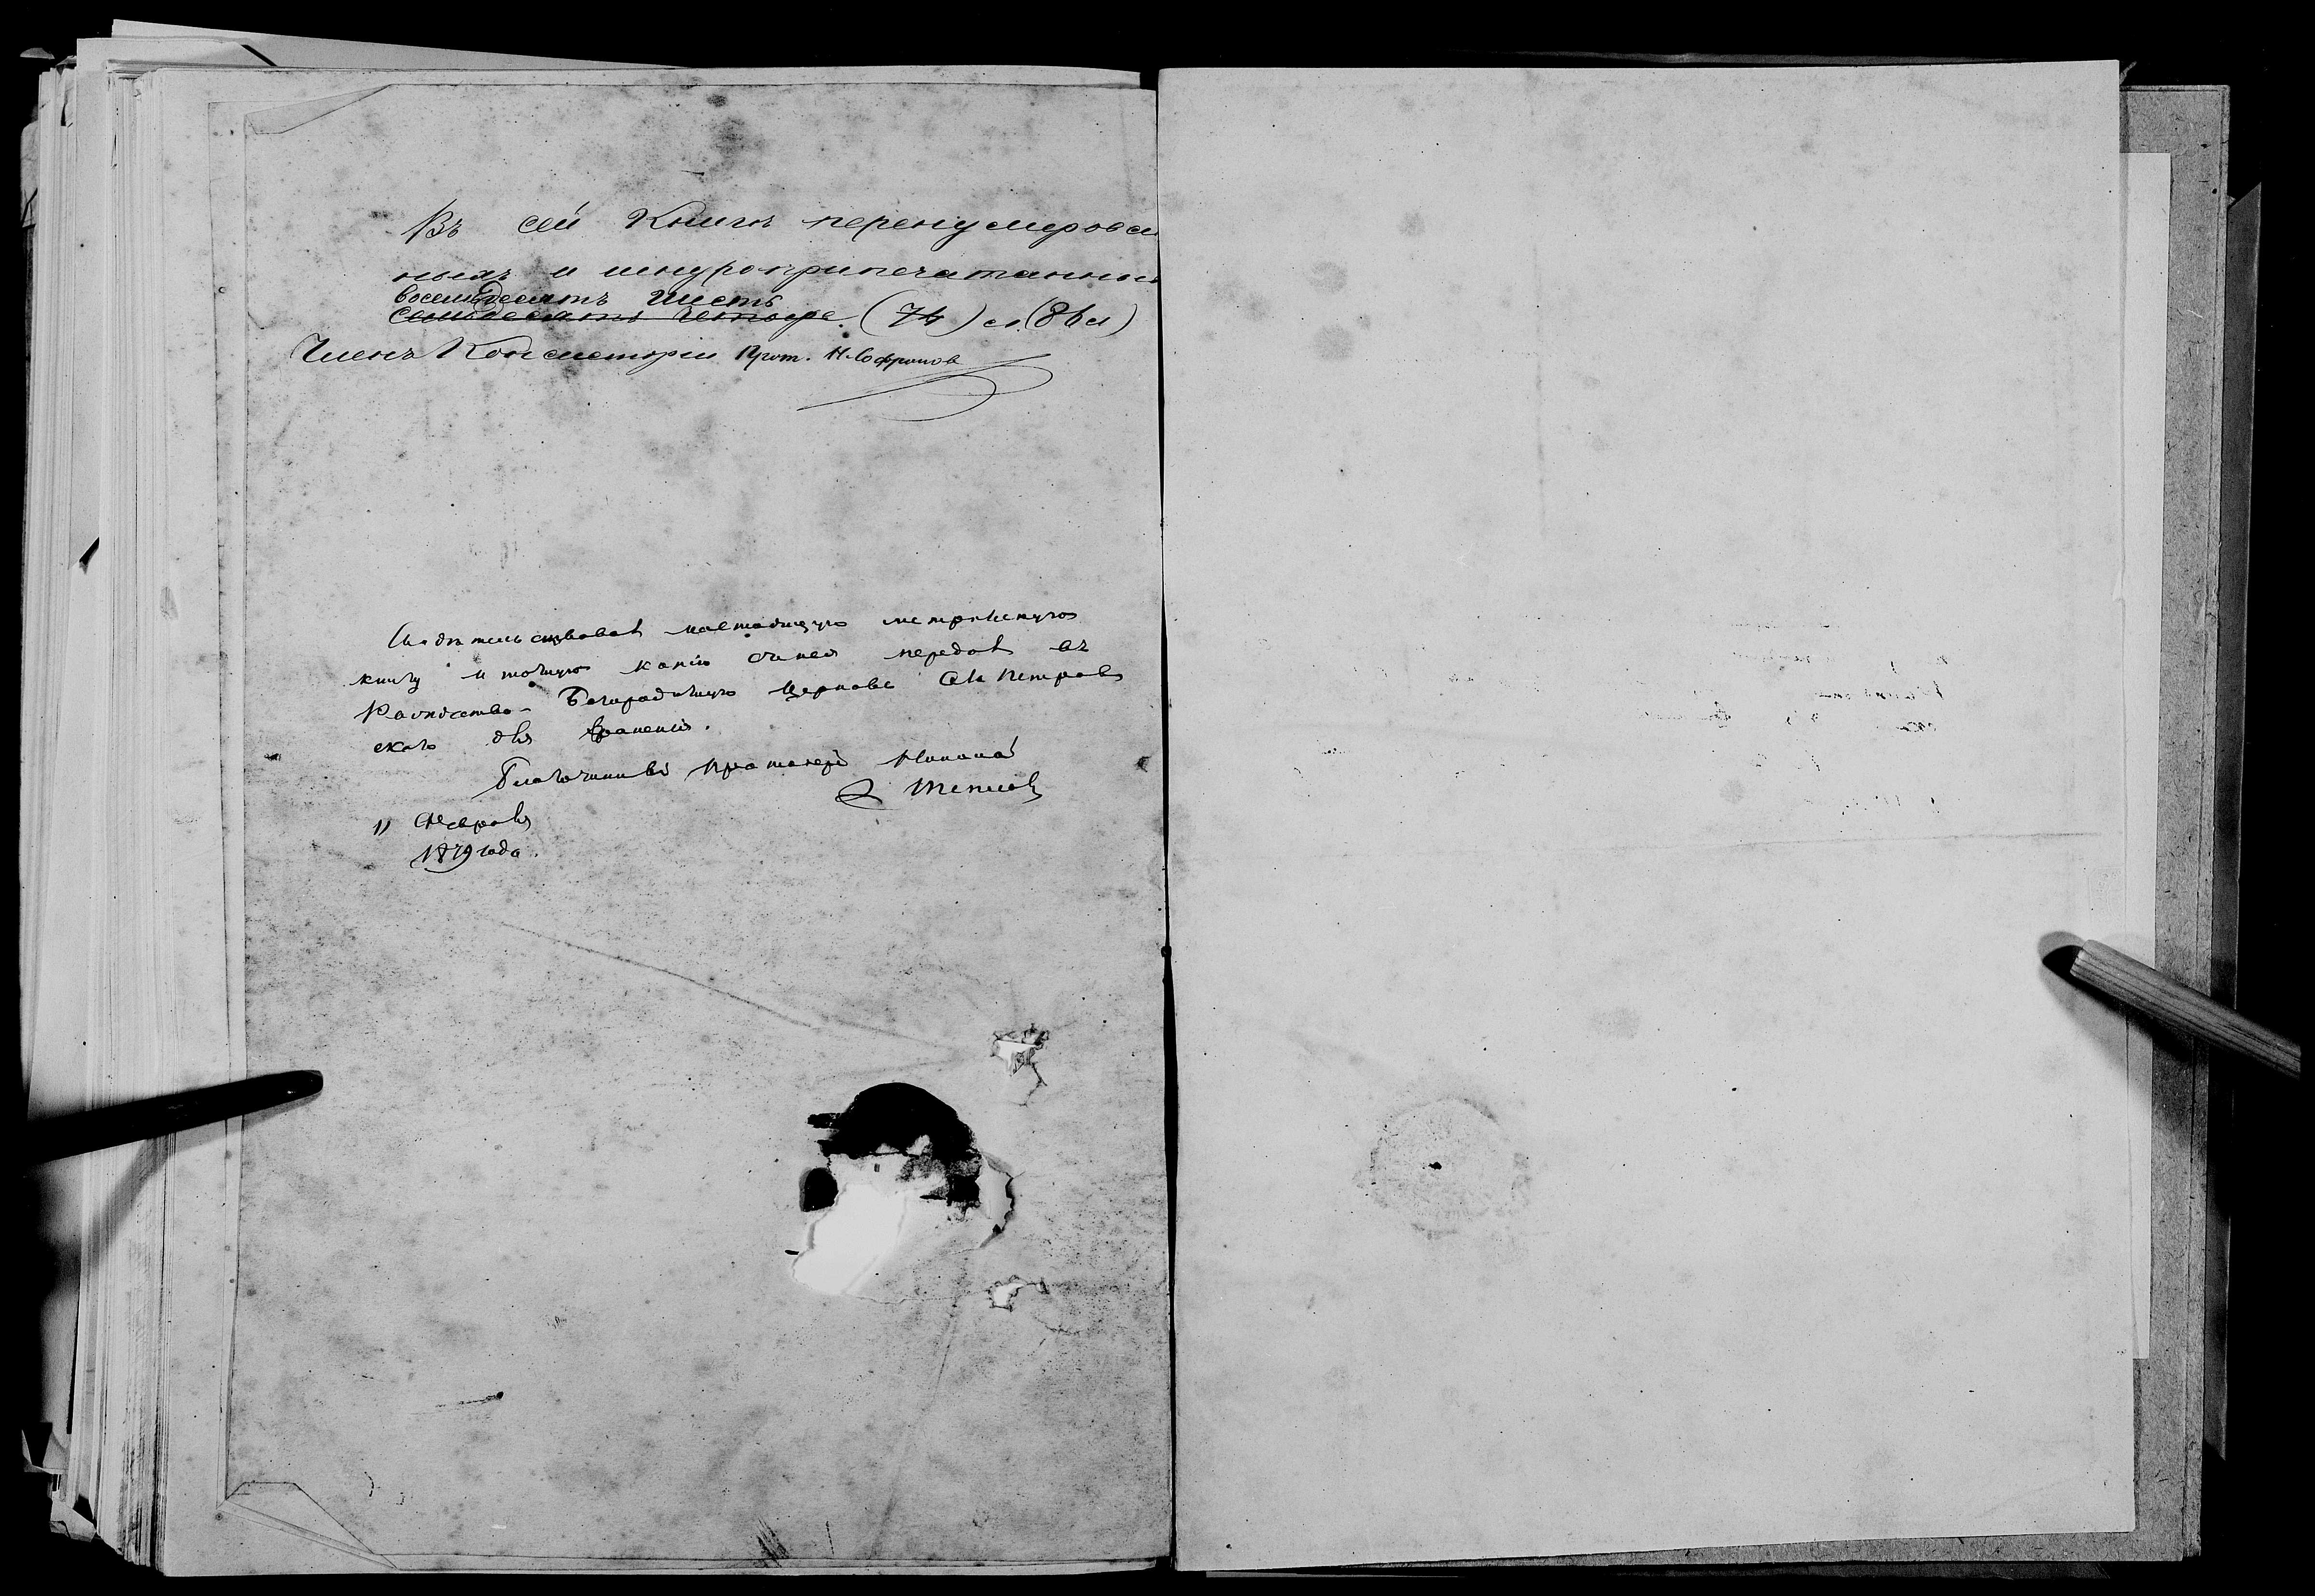 Въ сей Книгѣ перенумерован
ныхъ и шнуроприпечатанныхъ
восемьдесятъ шесть
семьдесятъ четыре. (74) л. (86 л)
Членъ Консисторіи Прот. Н. Софронов
Свидѣтельствовалъ настоящую метрическую
книгу и точную копію съ нея передалъ въ
Рождество-Богородичную церковь
скаго для храненія.
Благочинный Протоіерей
11 Февраля
1879 года.